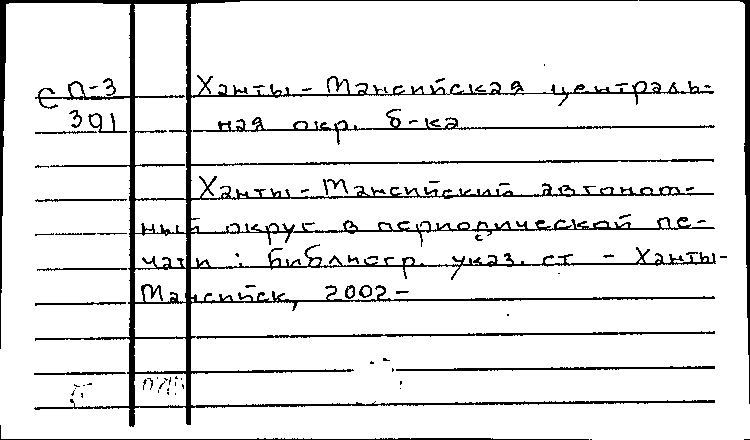 С П-3 Ханты-Мансийская централь-
391 ная окр. б-ка
Ханты-Мансийский автоном-
ный округ в периодической пе-
чати : библиогр. указ. ст - Ханты-
Мансийск, 2002-